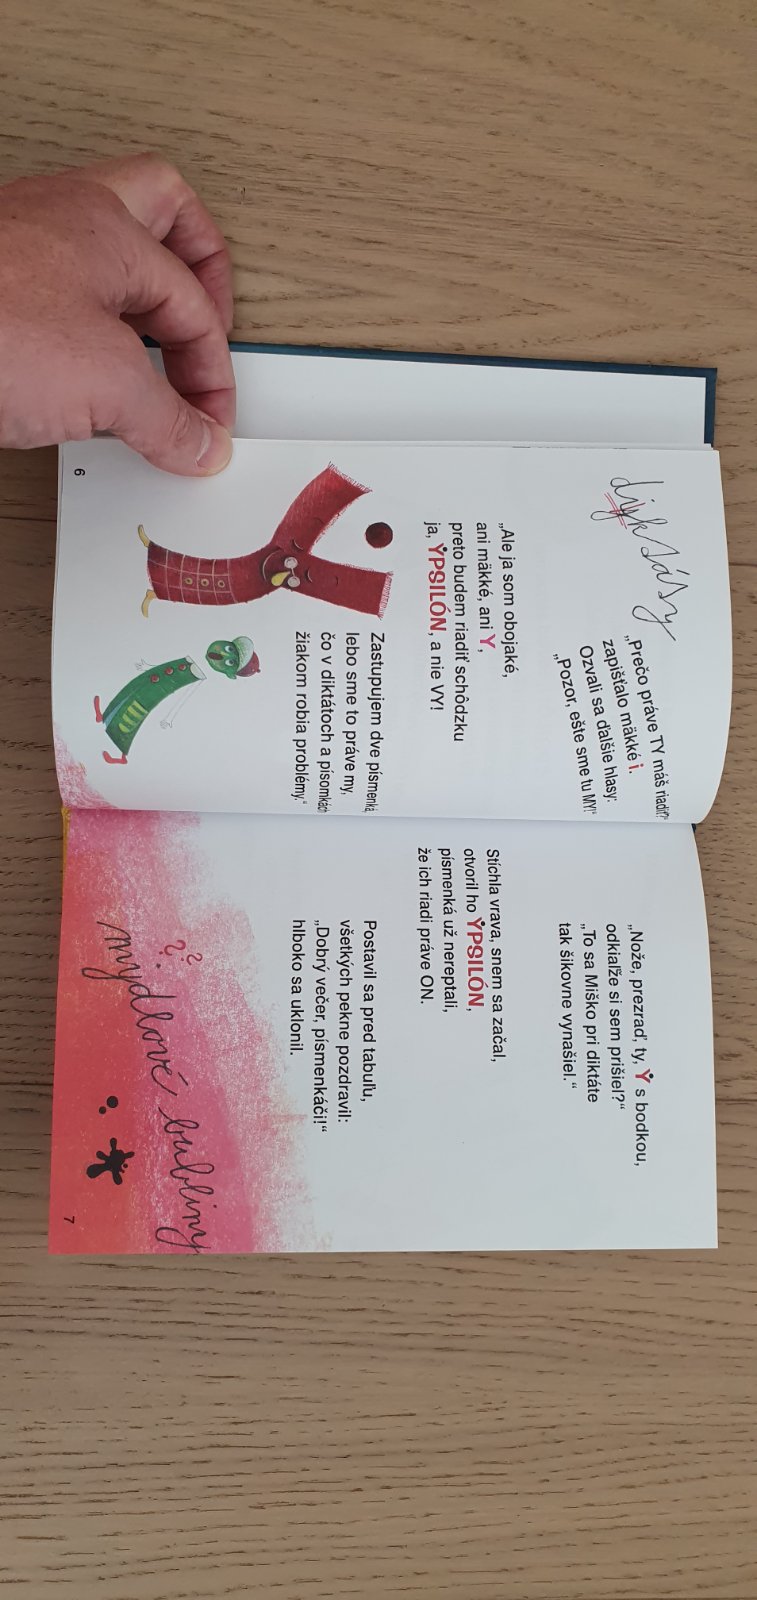 diyk sásy
„Prečo práve TY máš riadiť?“
zapišťalo mäkké i.
Ozvali sa ďalšie hlasy:
„Pozor, ešte sme tu MY!“
„Ale ja som obojaké,
ani mäkké, ani Y,
preto budem riadiť schôdzku
ja, ẎPSILÓN, a nie VY!
Zastupujem dve písmenká,
lebo sme to práve my,
čo v diktátoch a písomkách
žiakom robia problémy.“
6
„Nože, prezraď, ty, Ẏ s bodkou,
odkiaľže si sem prišiel?“
„To sa Miško pri diktáte
tak šikovne vynašiel.“
Stíchla vrava, snem sa začal,
otvoril ho ẎPSILÓN,
písmenká už nereptali,
že ich riadi práve ON.
Postavil sa pred tabuľu,
všetkých pekne pozdravil:
„Dobrý večer, písmenkáči!“
hlboko sa uklonil.
???
mydlové bubliny
7